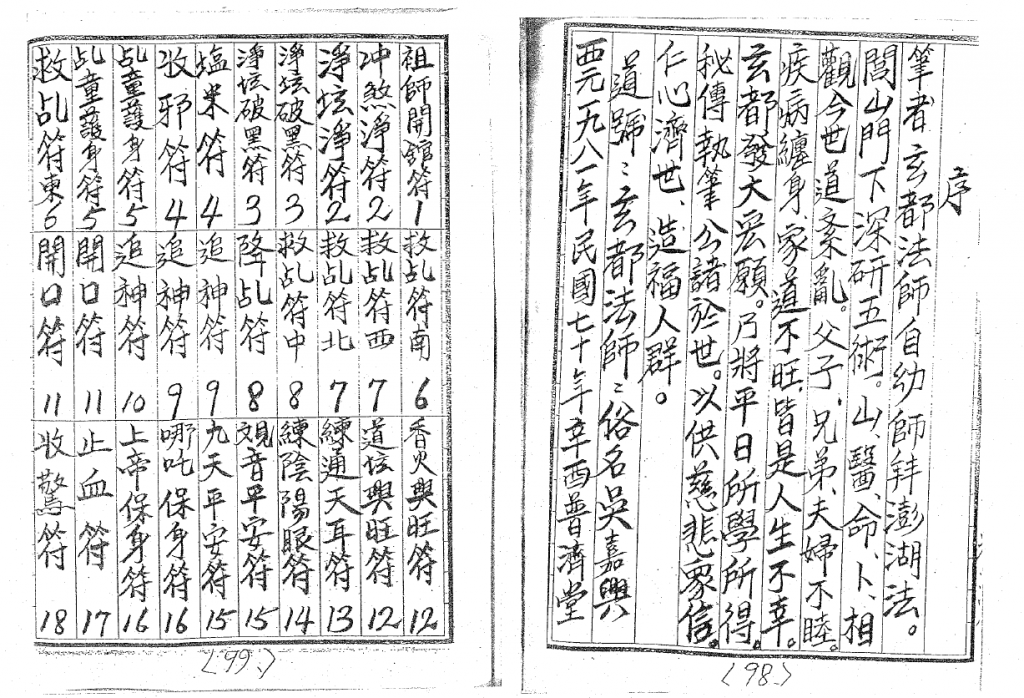 序
筆者玄都法師自幼師拜澎湖法。
閭山門下深研五術。山、醫、命、卜、相
觀今世道紊亂。父子、兄弟、夫婦不睦。
疾病纏身、家道不旺、皆是人生不幸。
玄都發大宏願。乃將平日所學所得。
秘傳執筆公諸於世。以供慈悲眾信。
仁心濟世、造福人群。
道號：玄都法師：俗名吳嘉興
西元一九八一年民國七十年辛酉普濟堂
〈98.〉
祖師開館符1
冲煞淨符2
淨坛淨符2
淨坛破黑符3
淨坛破黑符3
塩米符4
收邪符4
乩童護身符5
乩童護身符5
救乩符東6
救乩符南6
救乩符西7
救乩符北7
救乩符中8
降乩符8
追神符9
追神符9
追神符10
開口符11
開口符11
香火興旺符12
道坛興旺符12
練通天耳符13
練陰陽眼符14
觀音平安符15
九天平安符15
哪吒保身符16
上帝保身符16
止血符17
收驚符18
〈99.〉